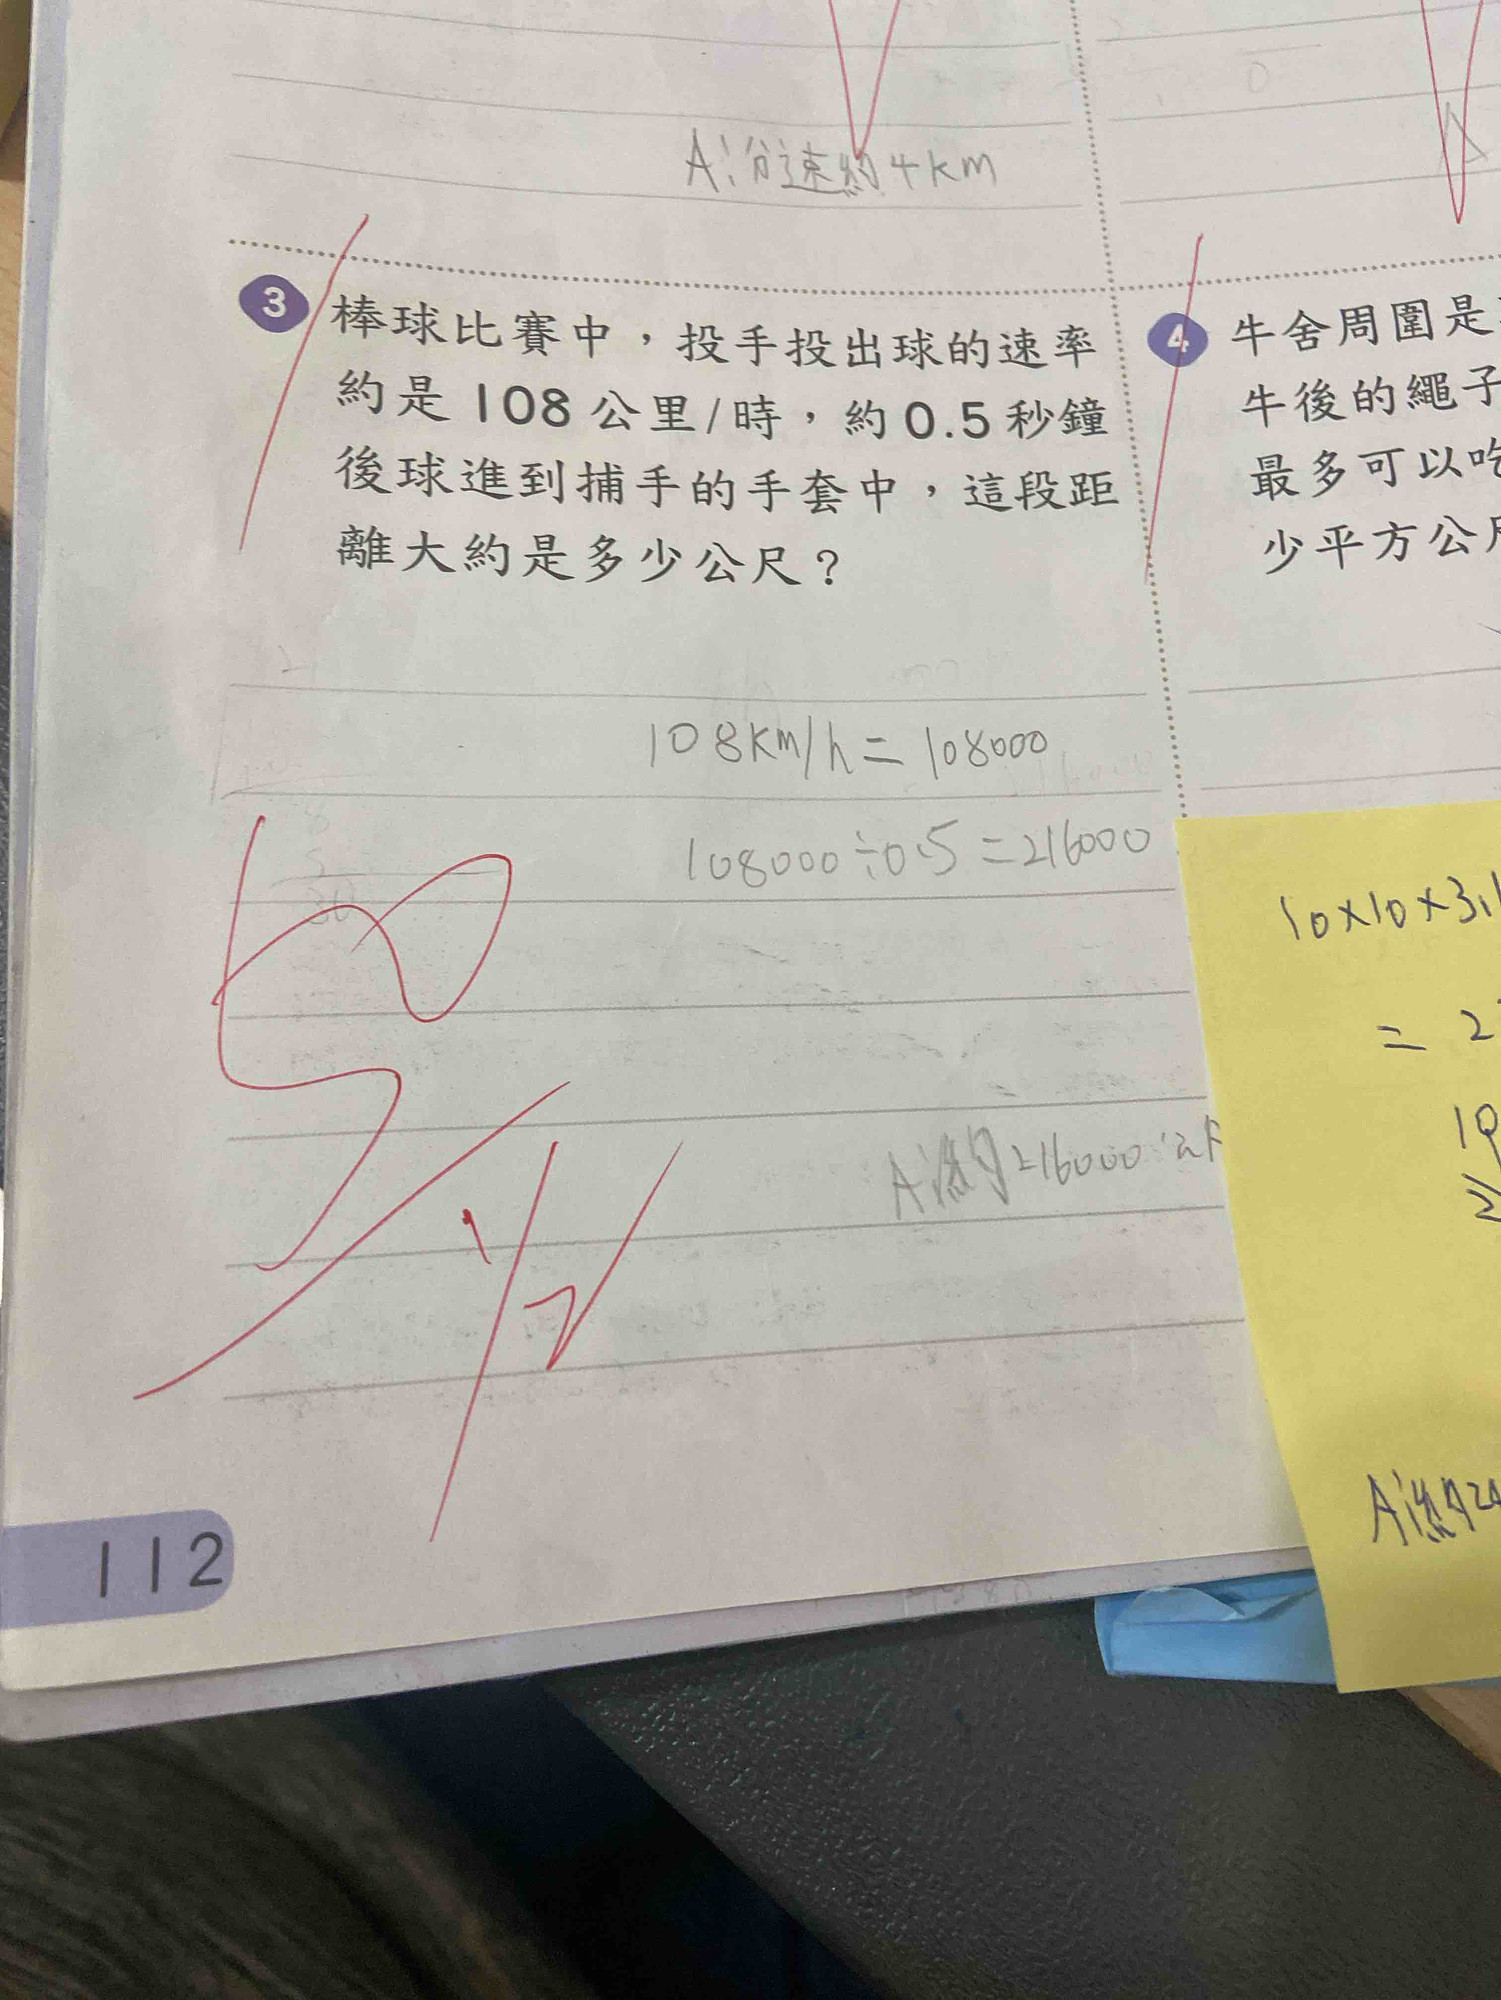 A:分速約4km
3 棒球比賽中，投手投出球的速率
約是108公里/時，約0.5秒鐘
後球進到捕手的手套中，這段距
離大約是多少公尺？
108km/h=108000
108000÷0.5=216000
A:約216000公尺
4 牛舍周圍是
牛後的繩子
最多可以吃
少平方公尺
10×10×3.1
= 2
10
2
A:約2
50
1/2
112